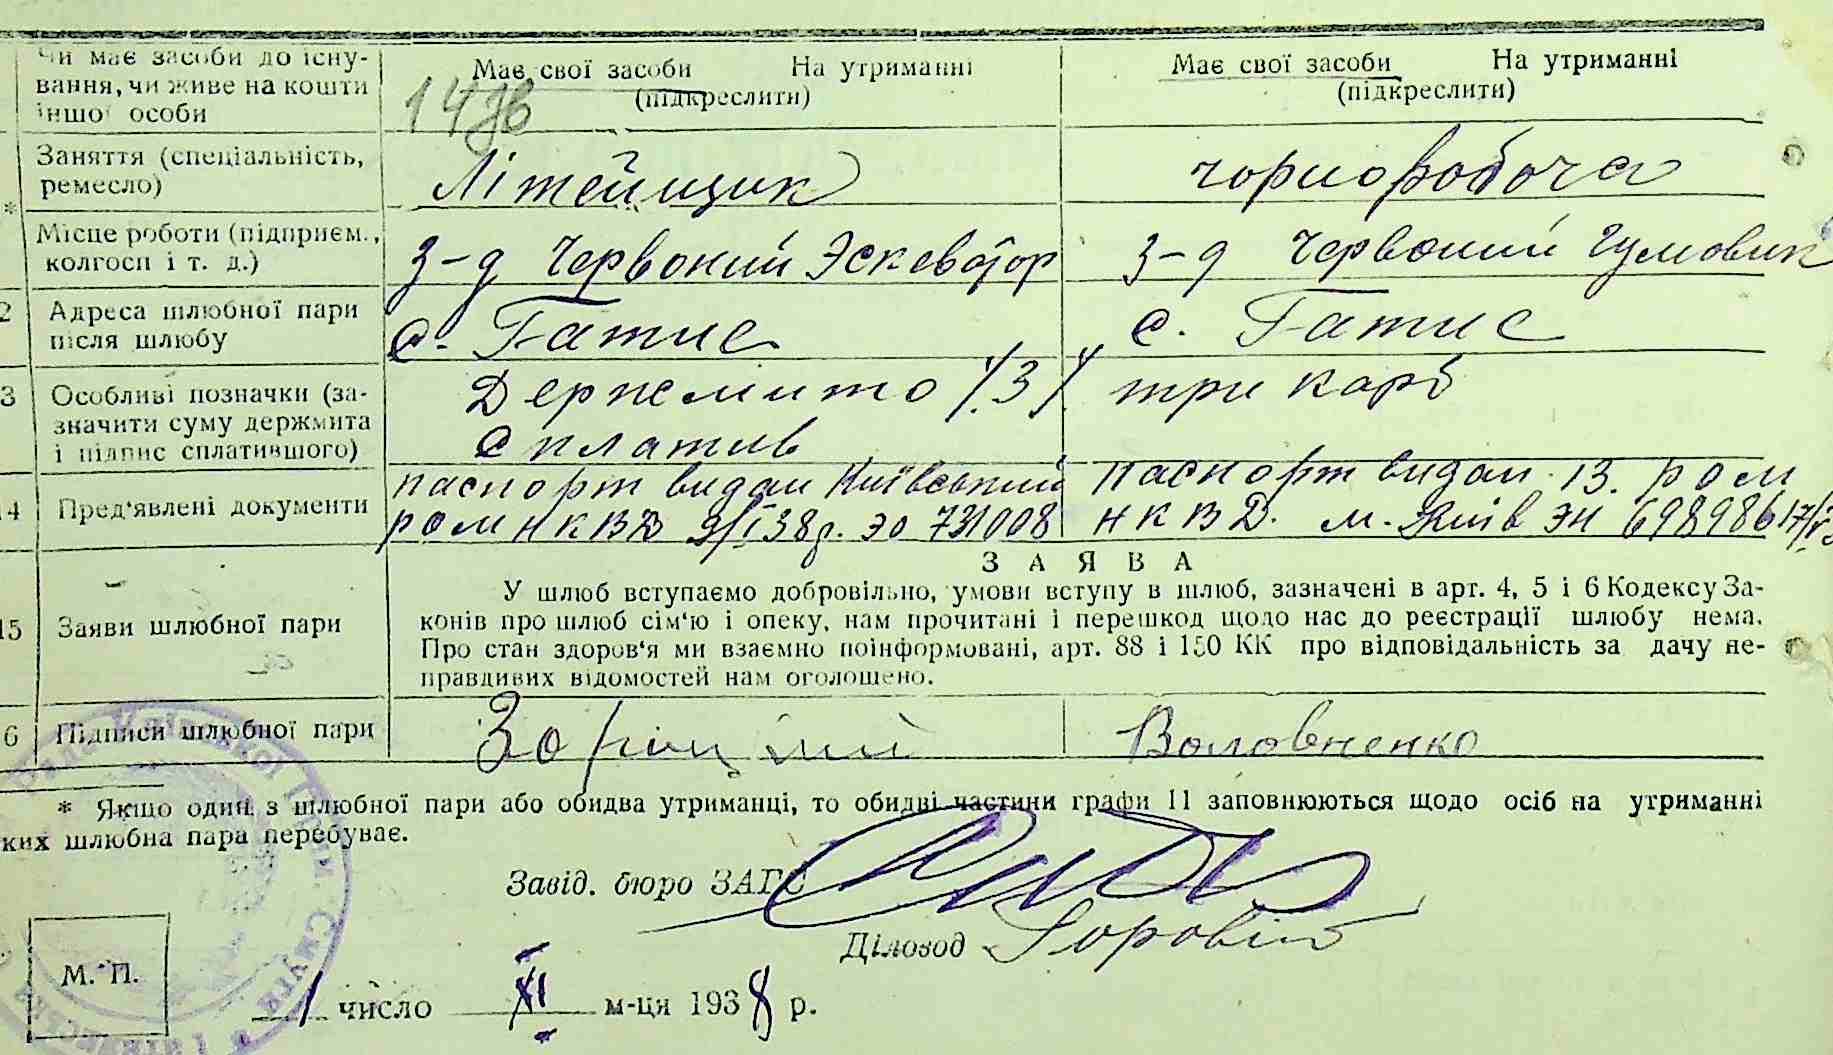 Чи має засоби до існу-
вання, чи живе на кошти
іншої особи
Має свої засоби На утриманні
(підкреслити)
Має свої засоби На утриманні
(підкреслити)
Заняття (спеціальність,
ремесло)
Літейщик
чорноробоча
*
Місце роботи (підприєм.,
колгосп і т. д.)
З-д Червоний Эскеватор
З-д Червоний Гумовик
2 Адреса шлюбної пари
після шлюбу
с. Гатне
с. Гатне
3 Особливі позначки (за-
значити суму держмита
і підпис сплатившого)
Держмито /3/ три карб
сплатив
14 Пред'явлені документи
паспорт видан Київський
ром НКВД 9/I 38р. ЭО 731008
паспорт видан 13. ром
НКВД. м. Київ ЭН 698986
З А Я В А
15 Заяви шлюбної пари
У шлюб вступаємо добровільно, умови вступу в шлюб, зазначені в арт. 4, 5 і 6 Кодексу За-
конів про шлюб сім'ю і опеку, нам прочитані і перешкод щодо нас до реєстрації шлюбу нема.
Про стан здоров'я ми взаємно поінформовані, арт. 88 і 150 КК про відповідальність за дачу не-
правдивих відомостей нам оголошено.
6 Підписи шлюбної пари
Зоріцкий
Воловненко
* Якщо один з шлюбної пари або обидва утриманці, то обидві частини графи 11 заповнюються щодо осіб на утриманні
ких шлюбна пара перебуває.
Завід. бюро ЗАГС
Діловод
М. П.
1 число XI м-ця 1938 р.